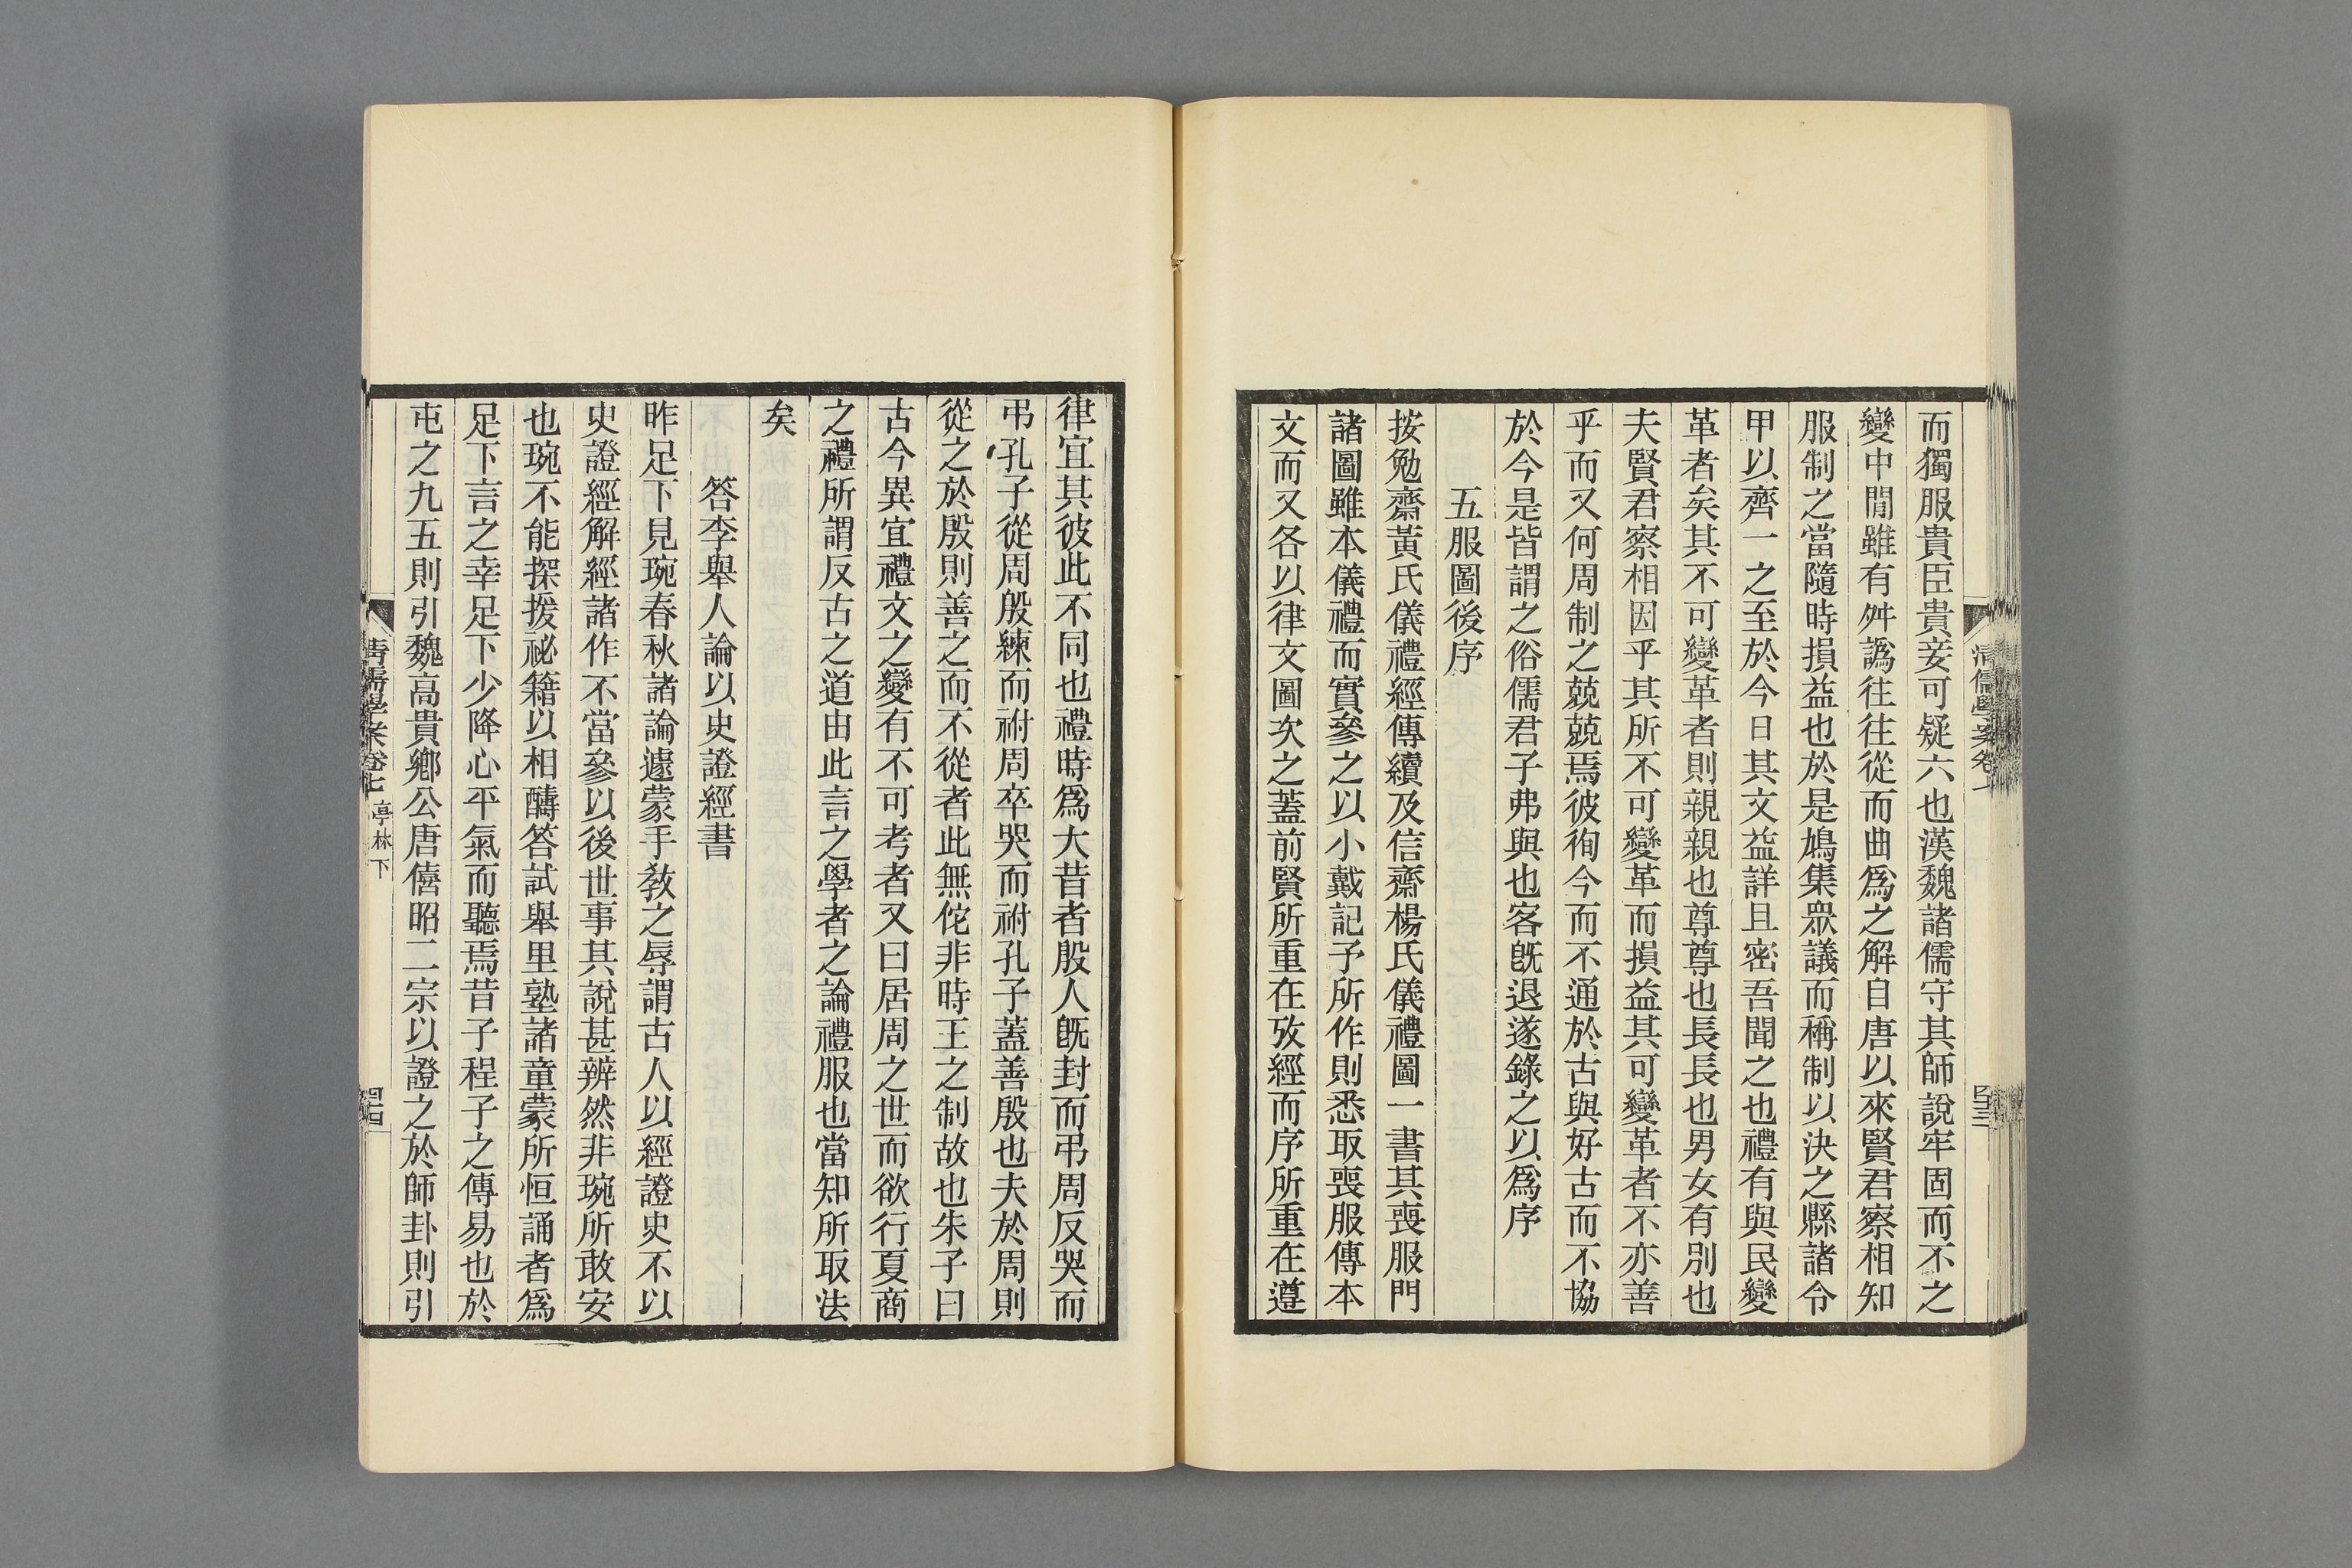 而獨服貴臣貴妾可疑六也漢魏諸儒守其師說牢固而不之
變中閒雖有舛譌往往從而曲爲之解自唐以來賢君察相知
服制之當隨時損益也於是鳩集眾議而稱制以決之縣諸令
甲以齊一之至於今日其文益詳且密吾聞之也禮有與民變
革者矣其不可變革者則親親也尊尊也長長也男女有別也
夫賢君察相因乎其所不可變革而損益其可變革者不亦善
乎而又何周制之兢兢焉彼徇今而不通於古與好古而不協
於今是皆謂之俗儒君子弗與也客旣退遂錄之以爲序
五服圖後序
按勉齋黃氏儀禮經傳續及信齋楊氏儀禮圖一書其喪服門
諸圖雖本儀禮而實參之以小戴記予所作則悉取喪服傳本
文而又各以律文圖次之蓋前賢所重在攷經而序所重在遵
律宜其彼此不同也禮時爲大昔者殷人旣封而弔周反哭而
弔孔子從周殷練而祔周卒哭而祔孔子蓋善殷也夫於周則
從之於殷則善之而不從者此無佗非時王之制故也朱子曰
古今異宜禮文之變有不可考者又曰居周之世而欲行夏商
之禮所謂反古之道由此言之學者之論禮服也當知所取法
矣
答李舉人論以史證經書
昨足下見琬春秋諸論遽蒙手敎之辱謂古人以經證史不以
史證經解經諸作不當參以後世事其說甚辨然非琬所敢安
也琬不能探援祕籍以相醻答試舉里塾諸童蒙所恒誦者爲
足下言之幸足下少降心平氣而聽焉昔子程子之傳易也於
屯之九五則引魏高貴鄉公唐僖昭二宗以證之於師卦則引
清儒學案卷七 亭林下